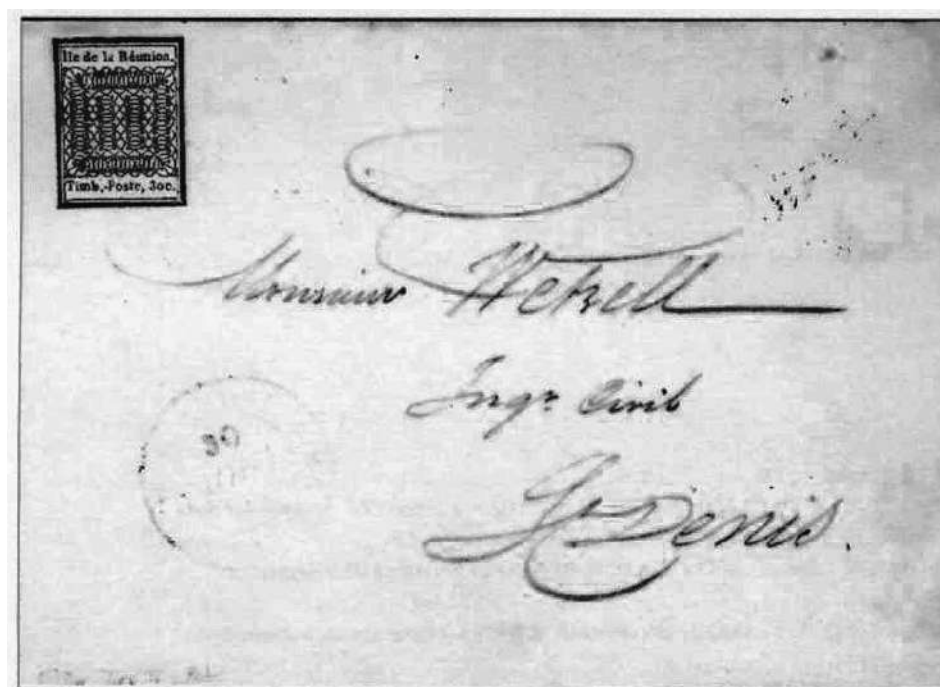 Ile de la Réunion.
Timb.-Poste, 30c.
Monsieur Wetzell
Ingr Civil
St Denis.